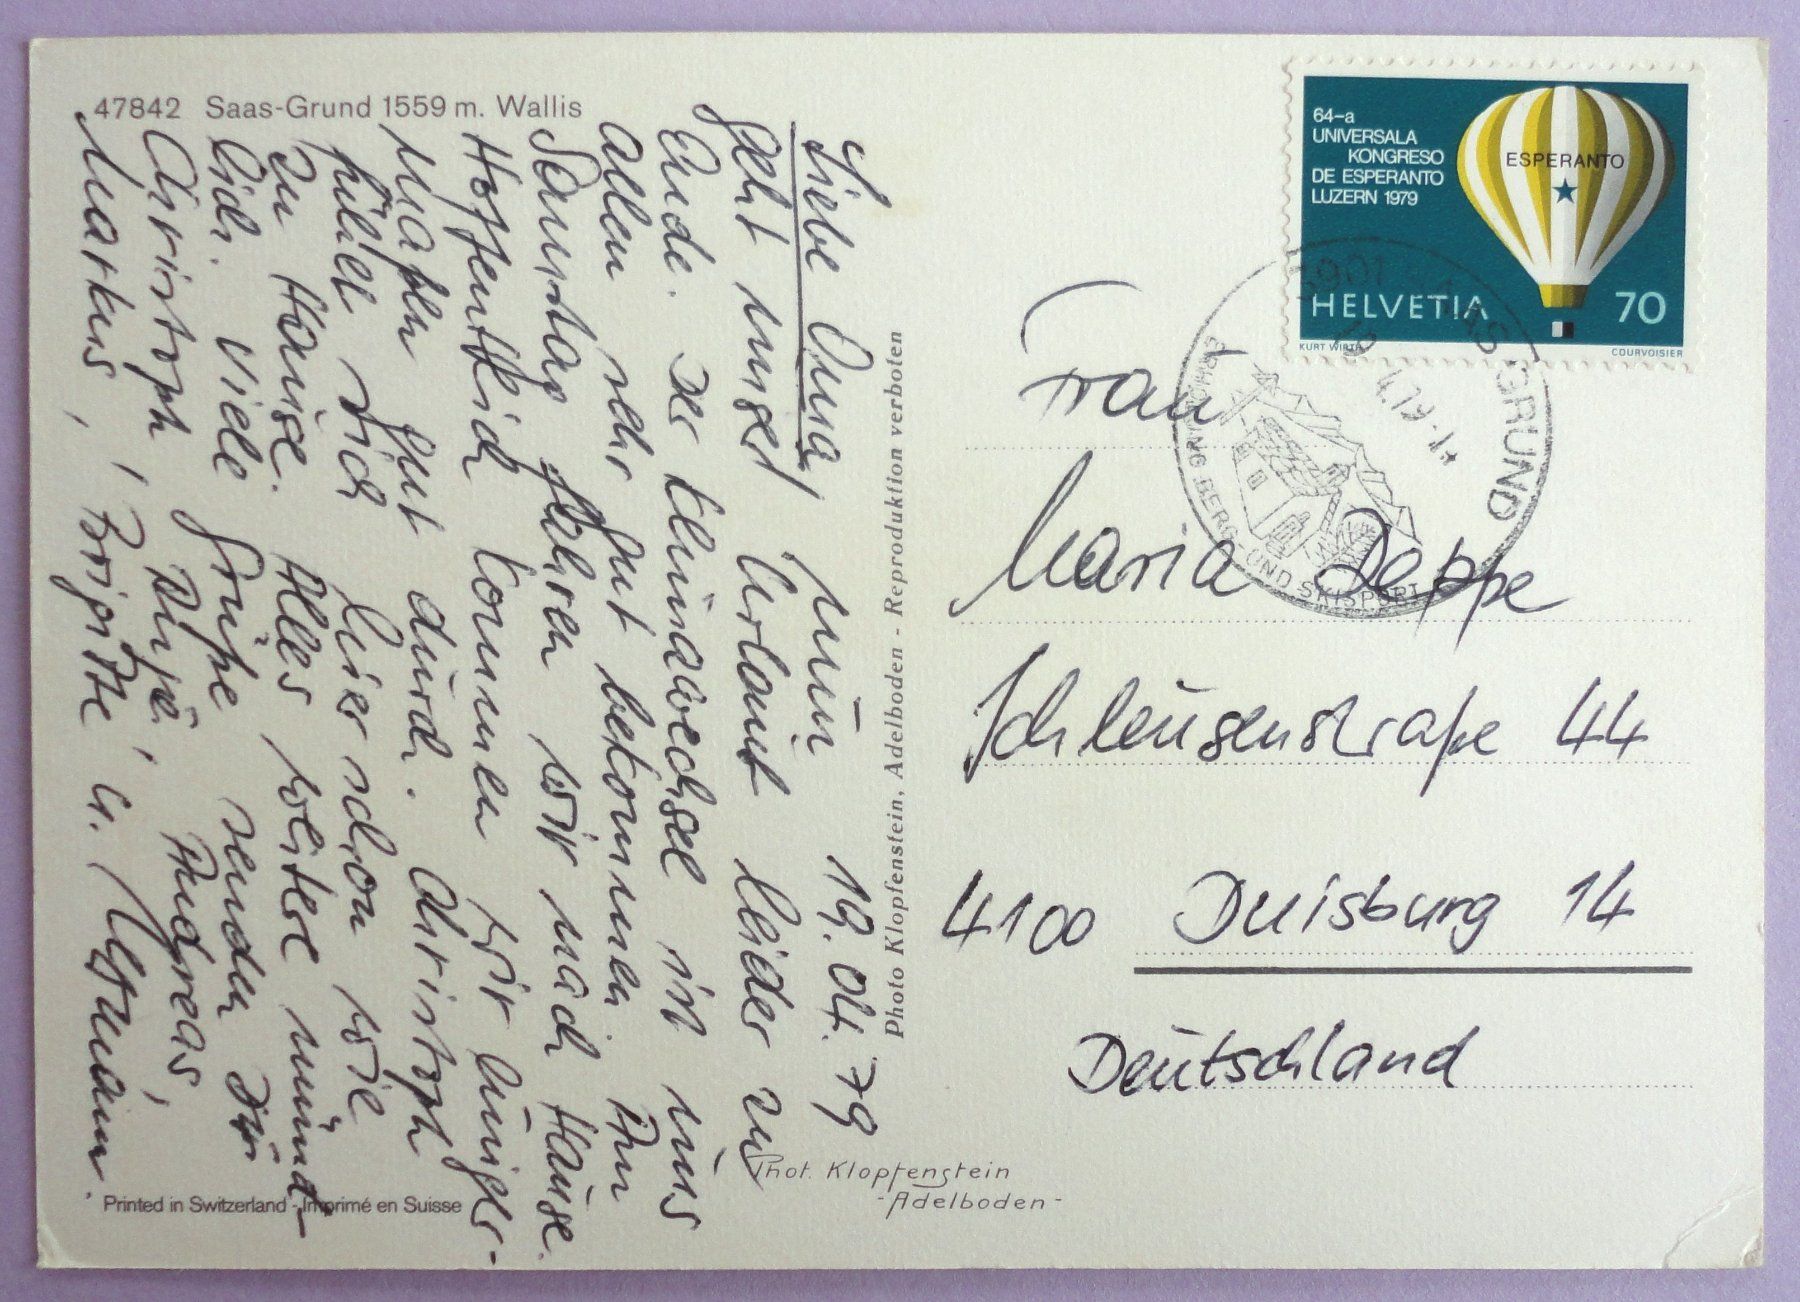 47842 Saas-Grund 1559 m. Wallis
19. 04. 79
Liebe Oma, nun
geht unser Urlaub leider zu
Ende. Der Klimawechsel ist uns
allen sehr gut bekommen. Am
Samstag fahren wir nach Hause.
Hoffentlich kommen wir einiger-
maßen gut durch. Christoph
fühlt sich hier schon wie
zu Hause. Alles weitere münd-
lich. Viele Grüße senden Dir
Christoph, Anja, Andreas,
Markus, Brigitte u. Hermann.
Printed in Switzerland - Imprimé en Suisse
Photo Klopfenstein, Adelboden - Reproduktion verboten
Phot. Klopfenstein
- Adelboden -
64-a
UNIVERSALA
KONGRESO
DE ESPERANTO
LUZERN 1979
ESPERANTO
HELVETIA 70
KURT WIRTH
COURVOISIER
3901 SAAS GRUND
BERG- UND SKISPORT
Frau
Maria Deppe
Schleusenstraße 44
4100 Duisburg 14
Deutschland